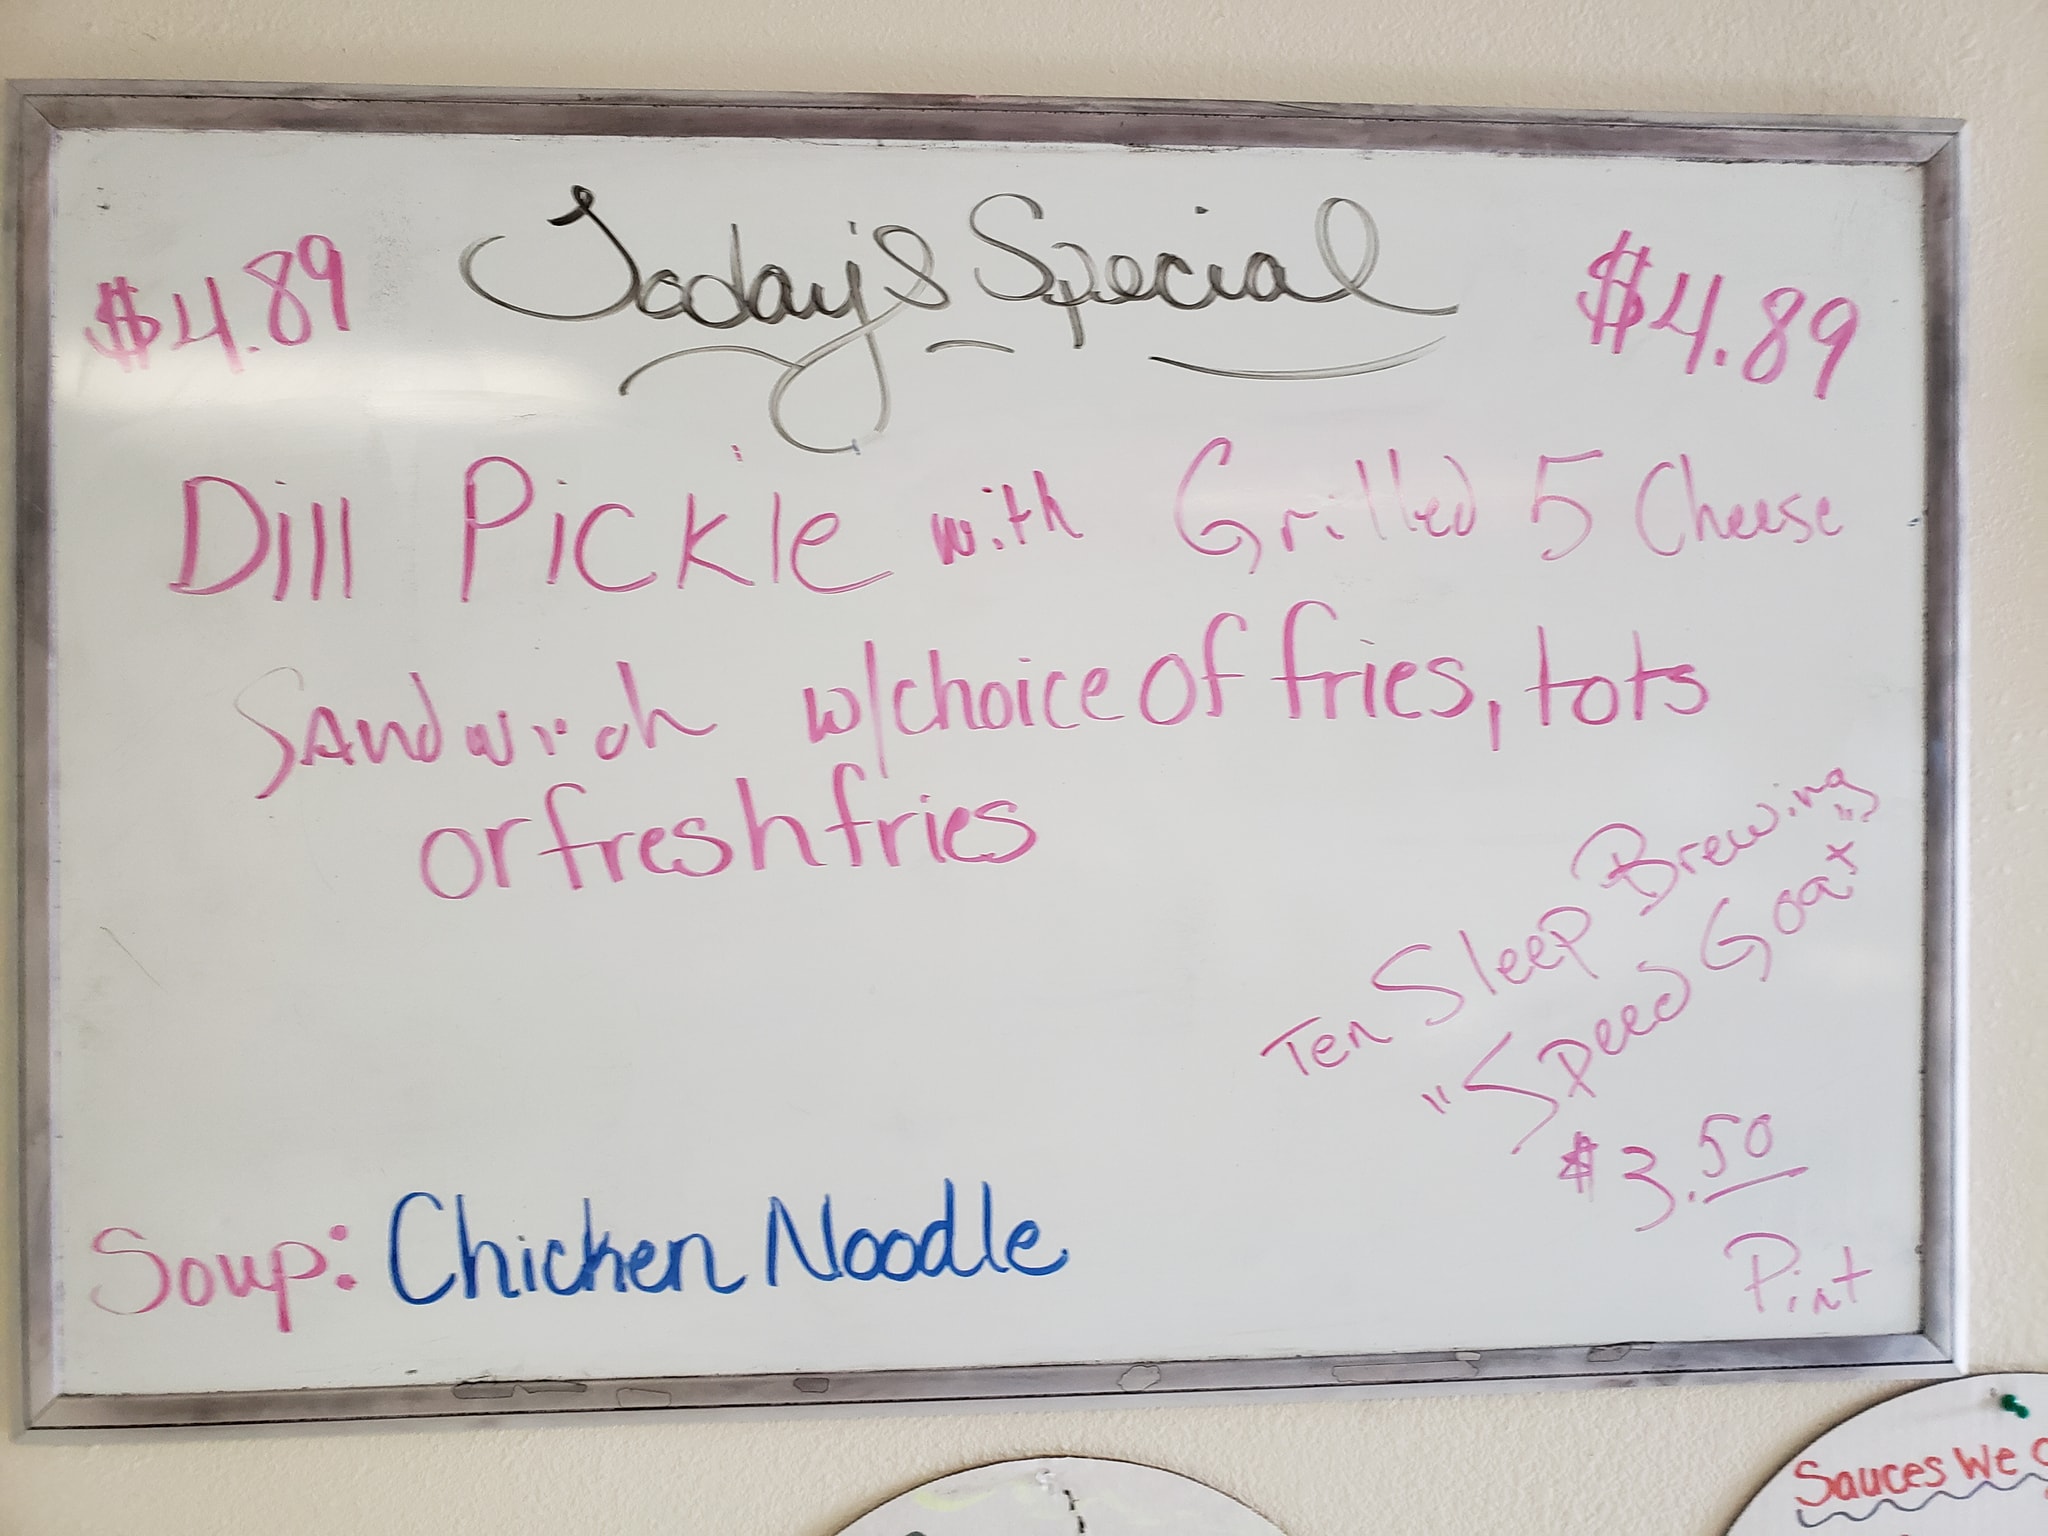 Today's Special
$4.89
$4.89
Dill Pickle with Grilled 5 Cheese
Sandwich w/choice of fries, tots
or fresh fries
Ten Sleep Brewing
"Speed Goat"
$3.50
Pint
Soup: Chicken Noodle
Sauces We